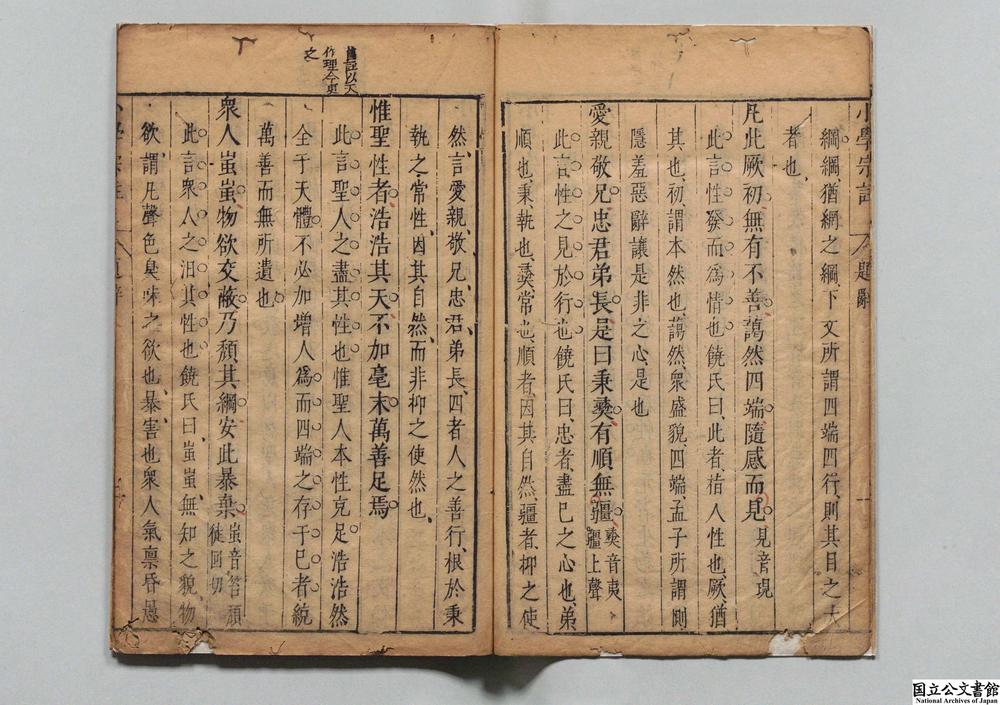 小學宗註 題辭
綱綱猶網之綱下文所謂四端四行則其目之大
者也
凡此厥初無有不善藹然四端隨感而見見音現
此言性發而爲情也饒氏曰此者指人性也厥猶
其也初謂本然也藹然衆盛貌四端孟子所謂惻
隱羞惡辭讓是非之心是也
愛親敬兄忠君弟長是曰秉彝有順無疆彝音夷
疆上聲
此言性之見於行也饒氏曰忠者盡已之心也弟
順也秉執也彝常也順者因其自然疆者抑之使
然言愛親敬兄忠君弟長四者人之善行根於秉
執之常性因其自然而非抑之使然也
舊註以天
作理今更
之
惟聖性者浩浩其天不加毫末萬善足焉
此言聖人之盡其性也惟聖人本性克足浩浩然
全于天體不必加增人爲而四端之存于已者統
萬善而無所遺也
衆人蚩蚩物欲交蔽乃頹其綱安此暴棄蚩音答頹
徒回切
此言衆人之汨其性也饒氏曰蚩蚩無知之貌物
欲謂凡聲色臭味之欲也暴害也衆人氣禀昏愚
国立公文書館
National Archives of Japan